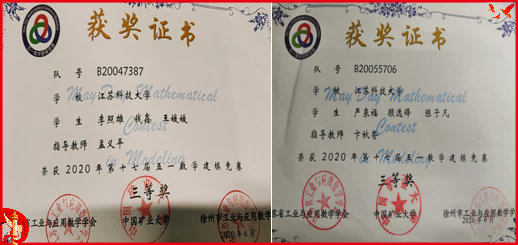 获奖证书
队 号 B20047387
学 校 江苏科技大学
May Day Mathematical
学 生 李照雄 钱鑫 王媛媛
Contest
指导教师 孟义平
in Modeling
荣获2020年第十七届五一数学建模竞赛
三等奖
市工业与应用数学学会
中国矿业大学
徐州市工业与应用数学
2020年6月
获奖证书
队 号 B20055706
学 校 江苏科技大学
May Day Mathematical
学 生 严来福 顾逸锋 陈子凡
Contest
指导教师 卞秋香
in Modeling
荣获2020年第十七届五一数学建模竞赛
三等奖
苏省工业与应用数学学会
中国矿业大学
徐州市工业与应用数学
2020年6月